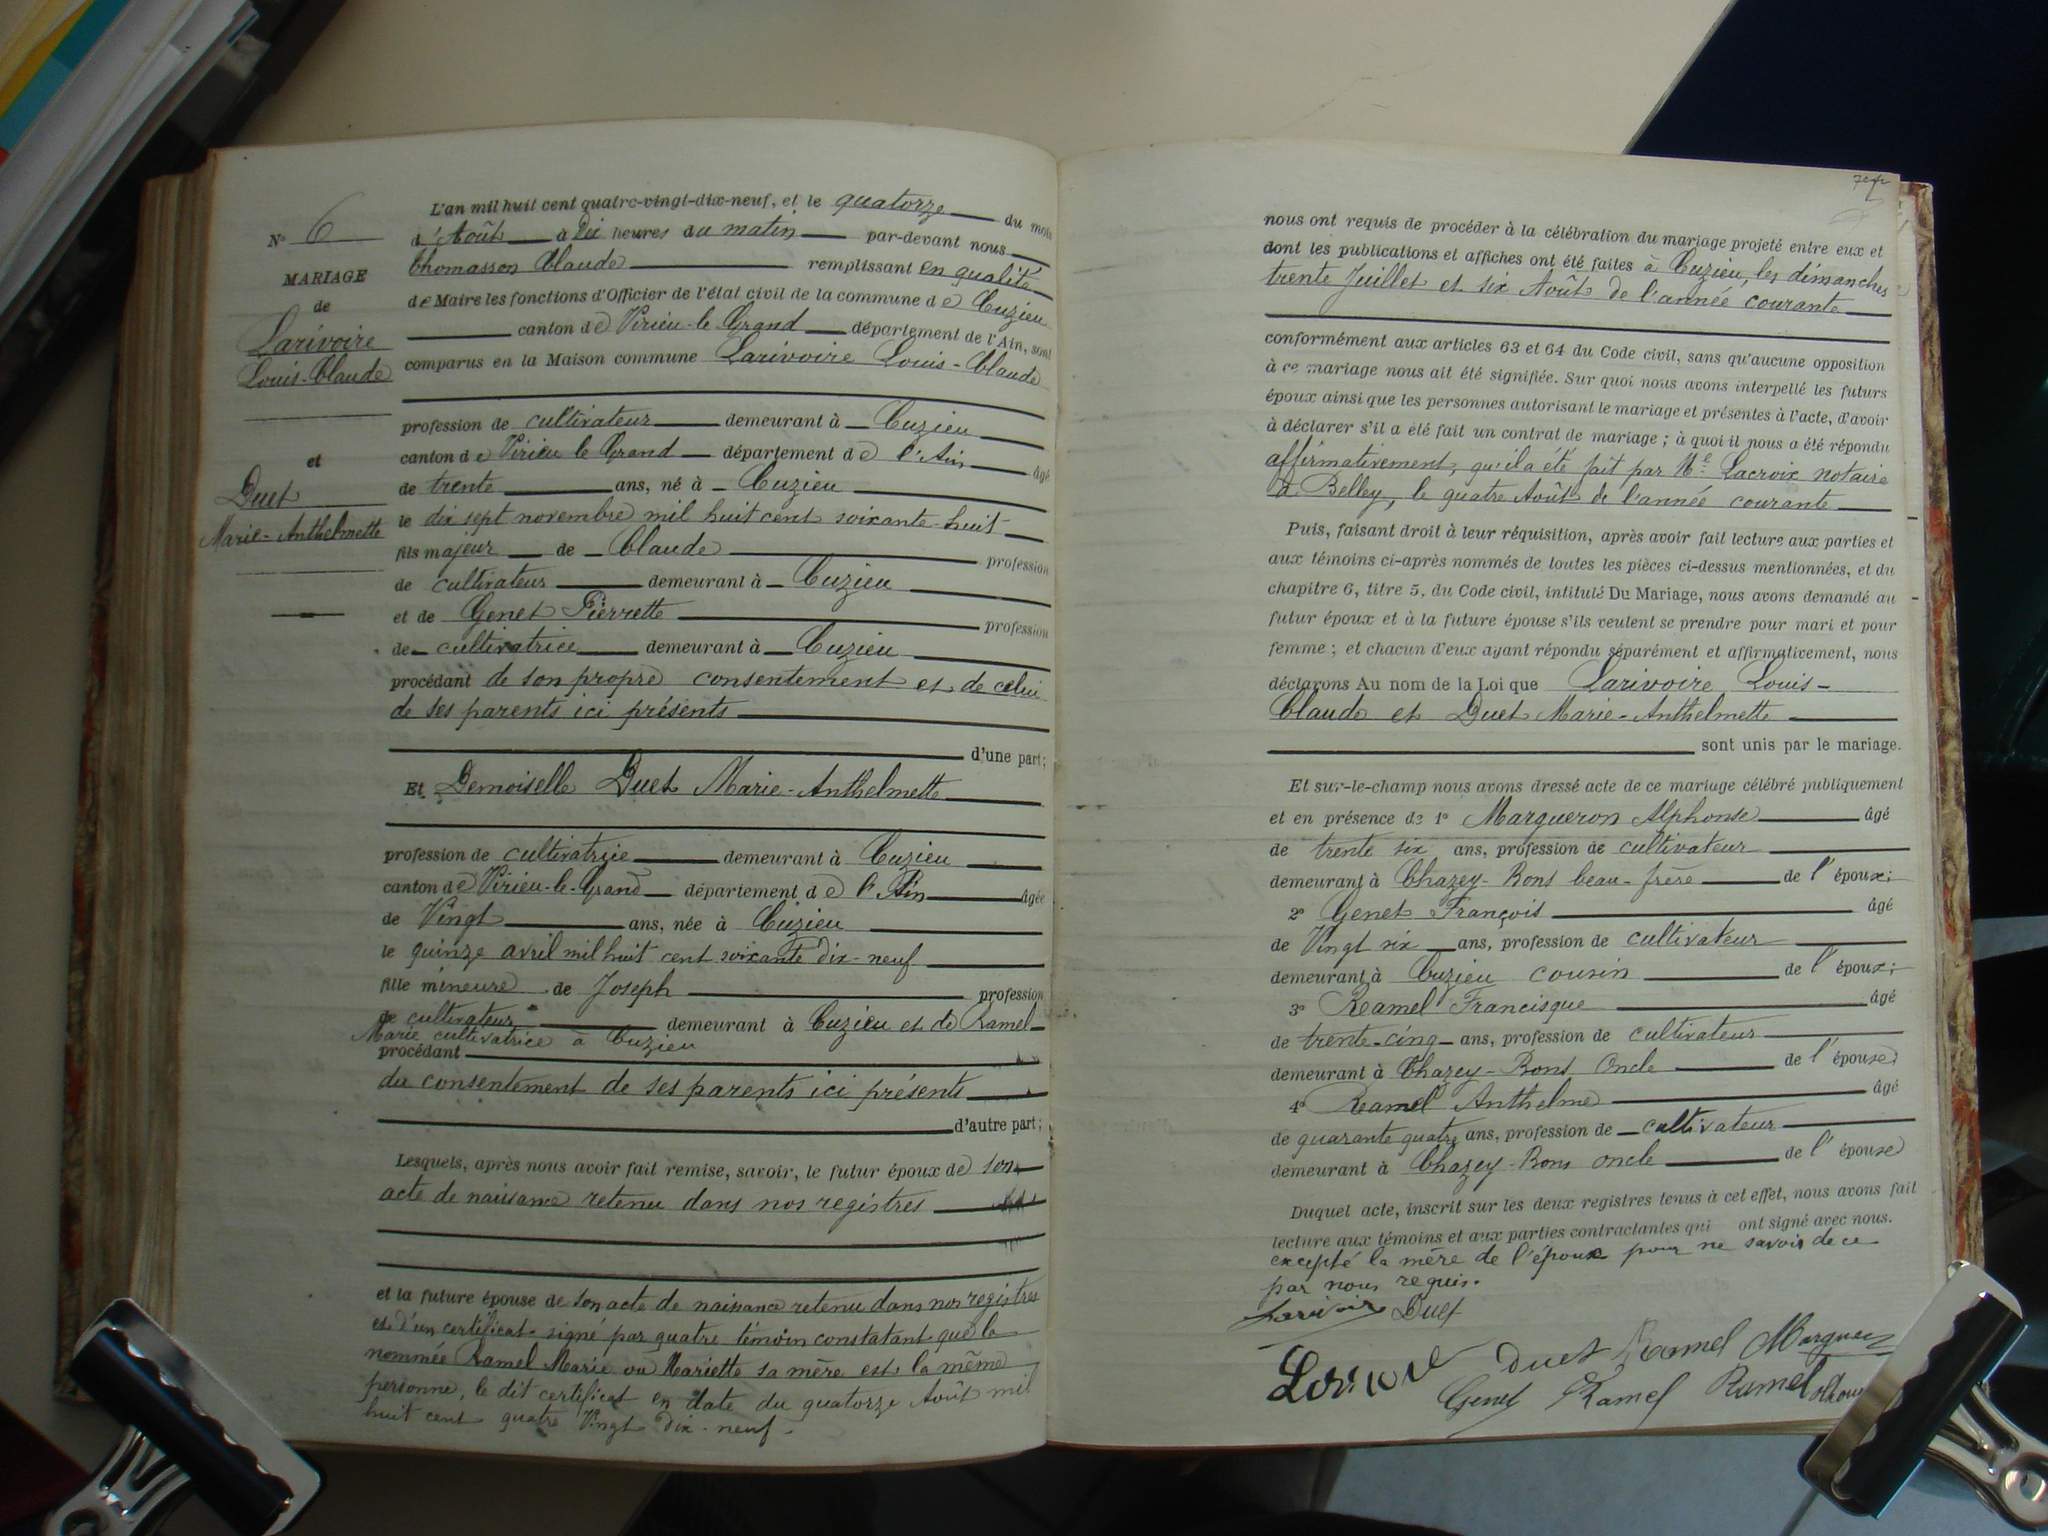 N° 6
MARIAGE
de
Larivoire
Louis-Claude
et
Duet
Marie-Anthelmette
L'an mil huit cent quatre-vingt-dix-neuf, et le quatorze du mois
d'Août à Dix heures du matin par-devant nous
Thomasson Claude remplissant en qualité
de Maire les fonctions d'Officier de l'état civil de la commune de Cuzieu
canton de Virieu-le-Grand département de l'Ain, sont
comparus en la Maison commune Larivoire Louis-Claude
profession de cultivateur demeurant à Cuzieu
canton de Virieu le Grand département de l'Ain âgé
de trente ans, né à Cuzieu
le dix sept novembre mil huit cent soixante-huit
fils majeur de Claude profession
de cultivateur demeurant à Cuzieu
et de Genet Pierrette profession
de cultivatrice demeurant à Cuzieu
procédant de son propre consentement et de celui
de ses parents ici présents
d'une part;
Et Demoiselle Duet Marie-Anthelmette
profession de cultivatrice demeurant à Cuzieu
canton de Virieu-le-Grand département de l'Ain âgée
de Vingt ans, née à Cuzieu
le quinze avril mil huit cent soixante dix-neuf
fille mineure de Joseph profession
de cultivateur demeurant à Cuzieu et de Ramel
Marie cultivatrice à Cuzieu
procédant
du consentement de ses parents ici présents
d'autre part;
Lesquels, après nous avoir fait remise, savoir, le futur époux de son
acte de naissance retenu dans nos registres
et la future épouse de son acte de naissance retenu dans nos registres
et d'un certificat signé par quatre témoin constatant que la
nommée Ramel Marie ou Mariette sa mère est la même
personne, le dit certificat en date du quatorze Août mil
huit cent quatre Vingt Dix-neuf.
nous ont requis de procéder à la célébration du mariage projeté entre eux et
dont les publications et affiches ont été faites à Cuzieu, les dimanches
trente Juillet et six Août de l'année courante
conformément aux articles 63 et 64 du Code civil, sans qu'aucune opposition
à ce mariage nous ait été signifiée. Sur quoi nous avons interpellé les futurs
époux ainsi que les personnes autorisant le mariage et présentes à l'acte, d'avoir
à déclarer s'il a été fait un contrat de mariage; à quoi il nous a été répondu
affirmativement, qu'il a été fait par Me Lacroix notaire
à Belley, le quatre Août de l'année courante
Puis, faisant droit à leur réquisition, après avoir fait lecture aux parties et
aux témoins ci-après nommés de toutes les pièces ci-dessus mentionnées, et du
chapitre 6, titre 5, du Code civil, intitulé Du Mariage, nous avons demandé au
futur époux et à la future épouse s'ils veulent se prendre pour mari et pour
femme; et chacun d'eux ayant répondu séparément et affirmativement, nous
déclarons Au nom de la Loi que Larivoire Louis-
Claude et Duet Marie-Anthelmette
sont unis par le mariage.
Et sur-le-champ nous avons dressé acte de ce mariage célébré publiquement
et en présence de 1° Margueron Alphonse âgé
de trente six ans, profession de cultivateur
demeurant à Chazey-Bons beau-frère de l'époux;
2° Genet François âgé
de Vingt six ans, profession de cultivateur
demeurant à Cuzieu cousin de l'époux;
3° Ramel Francisque âgé
de trente-cinq ans, profession de cultivateur
demeurant à Chazey-Bons Oncle de l'épouse
4° Ramel Anthelme âgé
de quarante quatre ans, profession de cultivateur
demeurant à Chazey-Bons oncle de l'épouse
Duquel acte, inscrit sur les deux registres tenus à cet effet, nous avons fait
lecture aux témoins et aux parties contractantes qui ont signé avec nous.
excepté la mère de l'époux pour ne savoir de ce
par nous requis.
Larivoir Duet
Duet Ramel
Genet Ramel Ramel